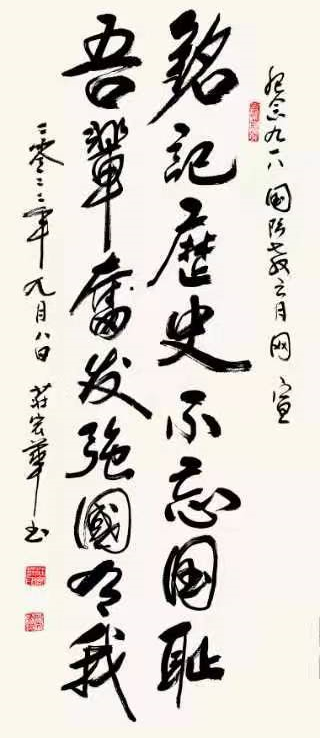 纪念九一八国防教育月网宣
銘記歷史不忘国耻
吾輩奮发強國有我
二零二二年九月八日 莊宏華书